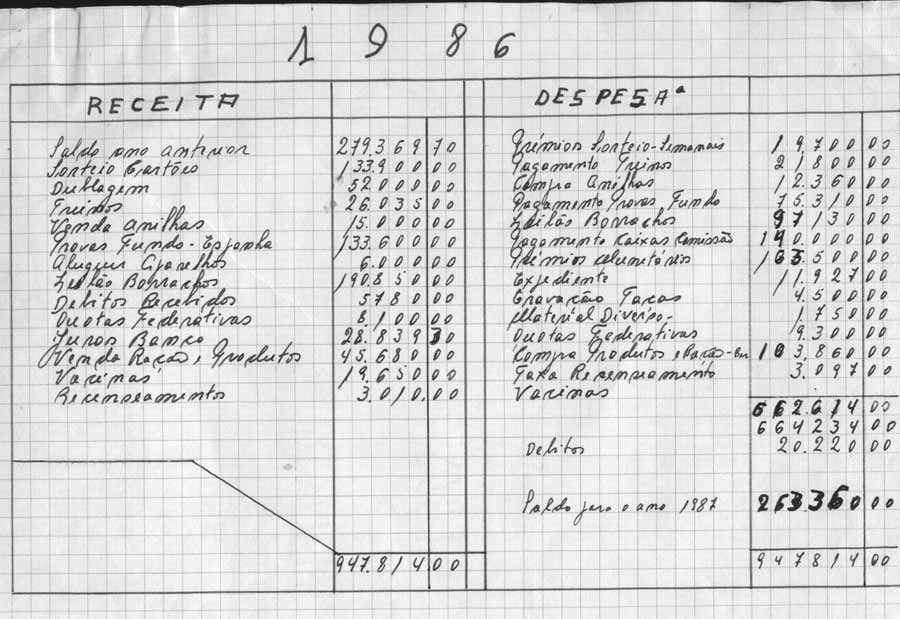 1986
RECEITA
Saldo ano anterior 279.369 70
Sorteio Cartões 133.900 00
Dublagem 52.000 00
Treinos 26.035 00
Venda Anilhas 15.000 00
Provas Fundo - Espanha 133.600 00
Aluguer 6.000 00
Leilão Borrachos 190.850 00
Debitos Recebidos 5780 00
Quotas Federativas 8.100 00
Juros Banco 28.839 30
Venda Ração, Produtos 45.680 00
Vacinas 19.650 00
Recenseamentos 3.010.00
947.814 00
DESPESAª
Prémios Sorteio-Semanais 19700 00
Pagamento Treinos 21800 00
Compra Anilhas 12.360 00
Pagamento Provas Fundo 75.310 00
Leilão Borrachos 97130 00
Pagamento Caixas Comissão 140.000 00
Prémios Monetários 163.500 00
Expediente 11.927 00
Gravação Taças 4.500 00
Material Diverso- 1.750 00
Quotas Federativas 9.300 00
Compra Produtos e Ração 103.860 00
Taxa Recenseamento 3.097 00
Vacinas
662.614 00
664234 00
Debitos 20.220 00
Saldo para o ano 1987 263.360 00
947814 00